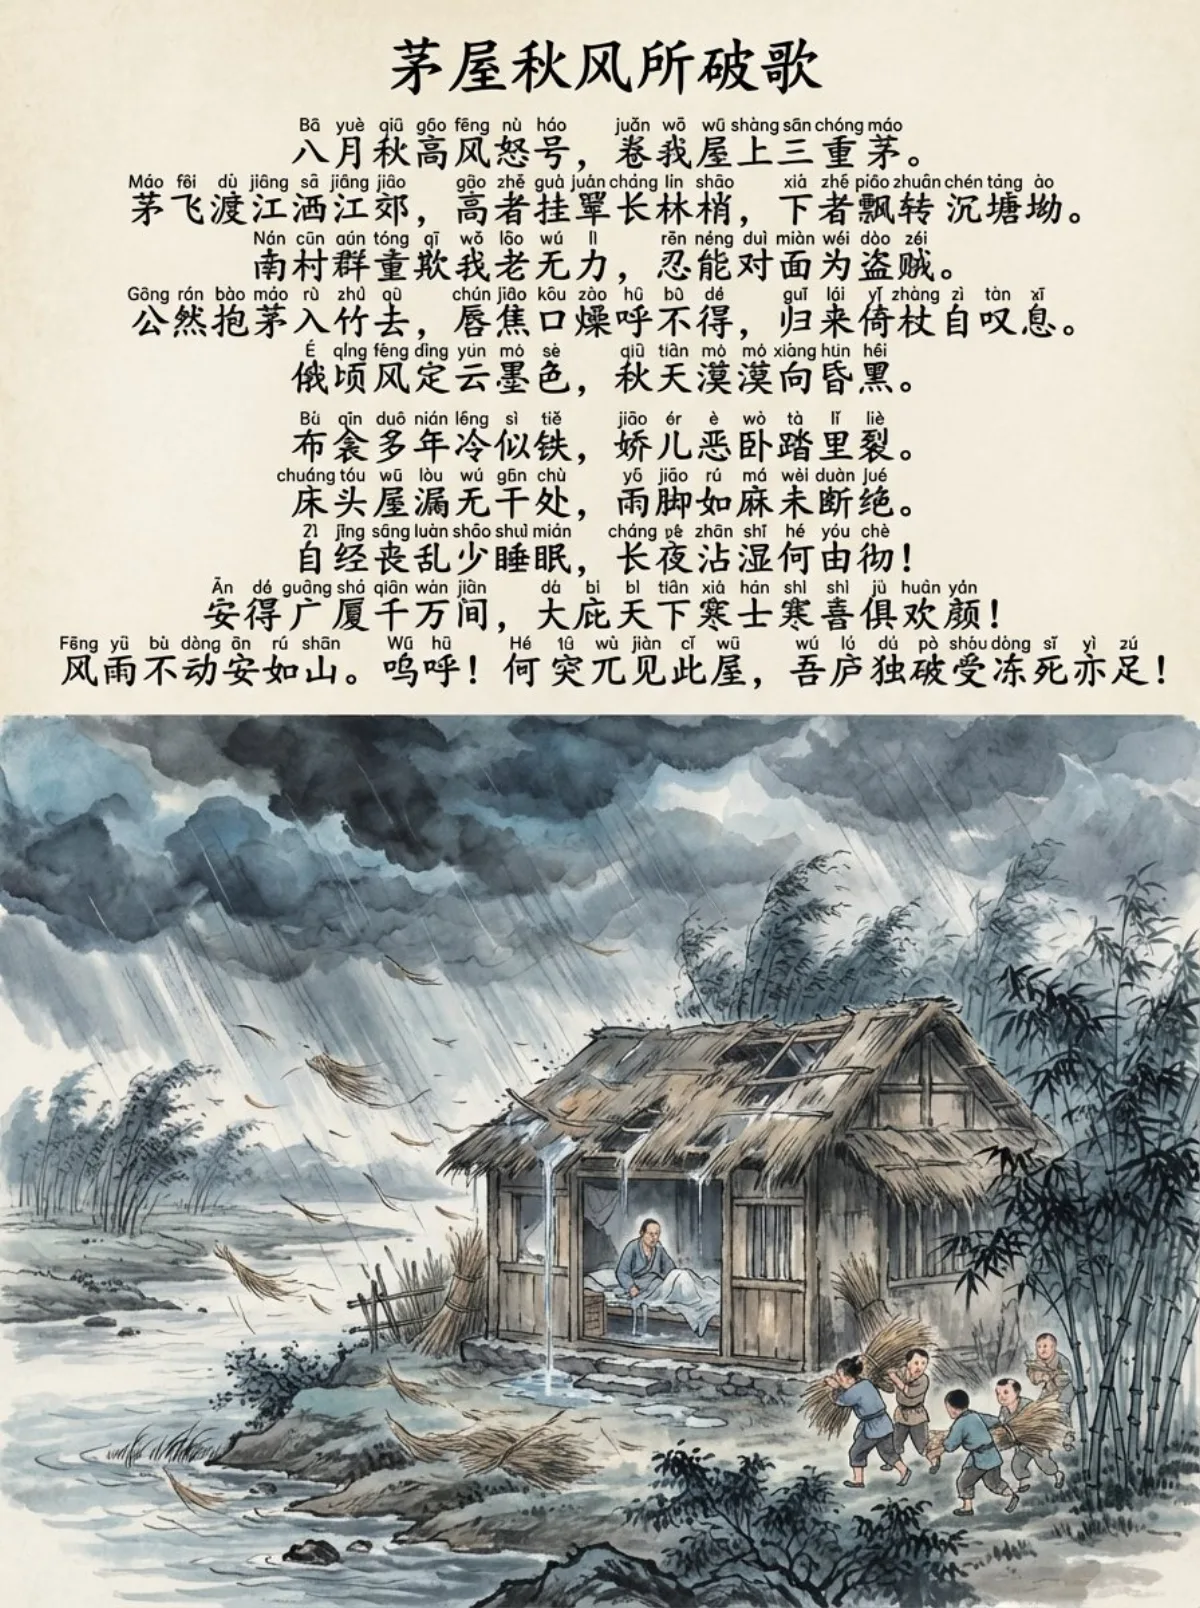 茅屋秋风所破歌
Bā yuè qiū gāo fēng nù háo juǎn wō wū shàng sān chóng máo
八月秋高风怒号，卷我屋上三重茅。
Máo fēi dù jiāng sǎ jiāng jiāo gāo zhě guà juàn cháng lín shāo xià zhé piāo zhuǎn chén táng ào
茅飞渡江洒江郊，高者挂罩长林梢，下者飘转沉塘坳。
Nán cūn qún tóng qī wǒ lǎo wú lì rěn néng duì miàn wéi dào zéi
南村群童欺我老无力，忍能对面为盗贼。
Gōng rán bào máo rù zhú qù chún jiāo kǒu zào hū bù dé guī lái yǐ zhàng zì tàn xī
公然抱茅入竹去，唇焦口燥呼不得，归来倚杖自叹息。
É qǐng fēng dìng yún mò sè qiū tiān mò mò xiàng hūn hēi
俄顷风定云墨色，秋天漠漠向昏黑。
Bù qīn duō nián lěng sì tiě jiāo ér è wò tà lǐ liè
布衾多年冷似铁，娇儿恶卧踏里裂。
chuáng tóu wū lòu wú gān chù yǔ jiāo rú má wèi duàn jué
床头屋漏无干处，雨脚如麻未断绝。
Zì jīng sāng luàn shǎo shuì mián cháng yè zhān shī hé yóu chè
自经丧乱少睡眠，长夜沾湿何由彻！
Ān dé guǎng shà qiān wàn jiān dà bì tiān xià hán shì jù huān yán
安得广厦千万间，大庇天下寒士寒喜俱欢颜！
Fēng yǔ bù dòng ān rú shān Wū hū Hé wù jiàn cǐ wū wú lú dú pò shòu dòng sǐ yì zú
风雨不动安如山。呜呼！何突兀见此屋，吾庐独破受冻死亦足！